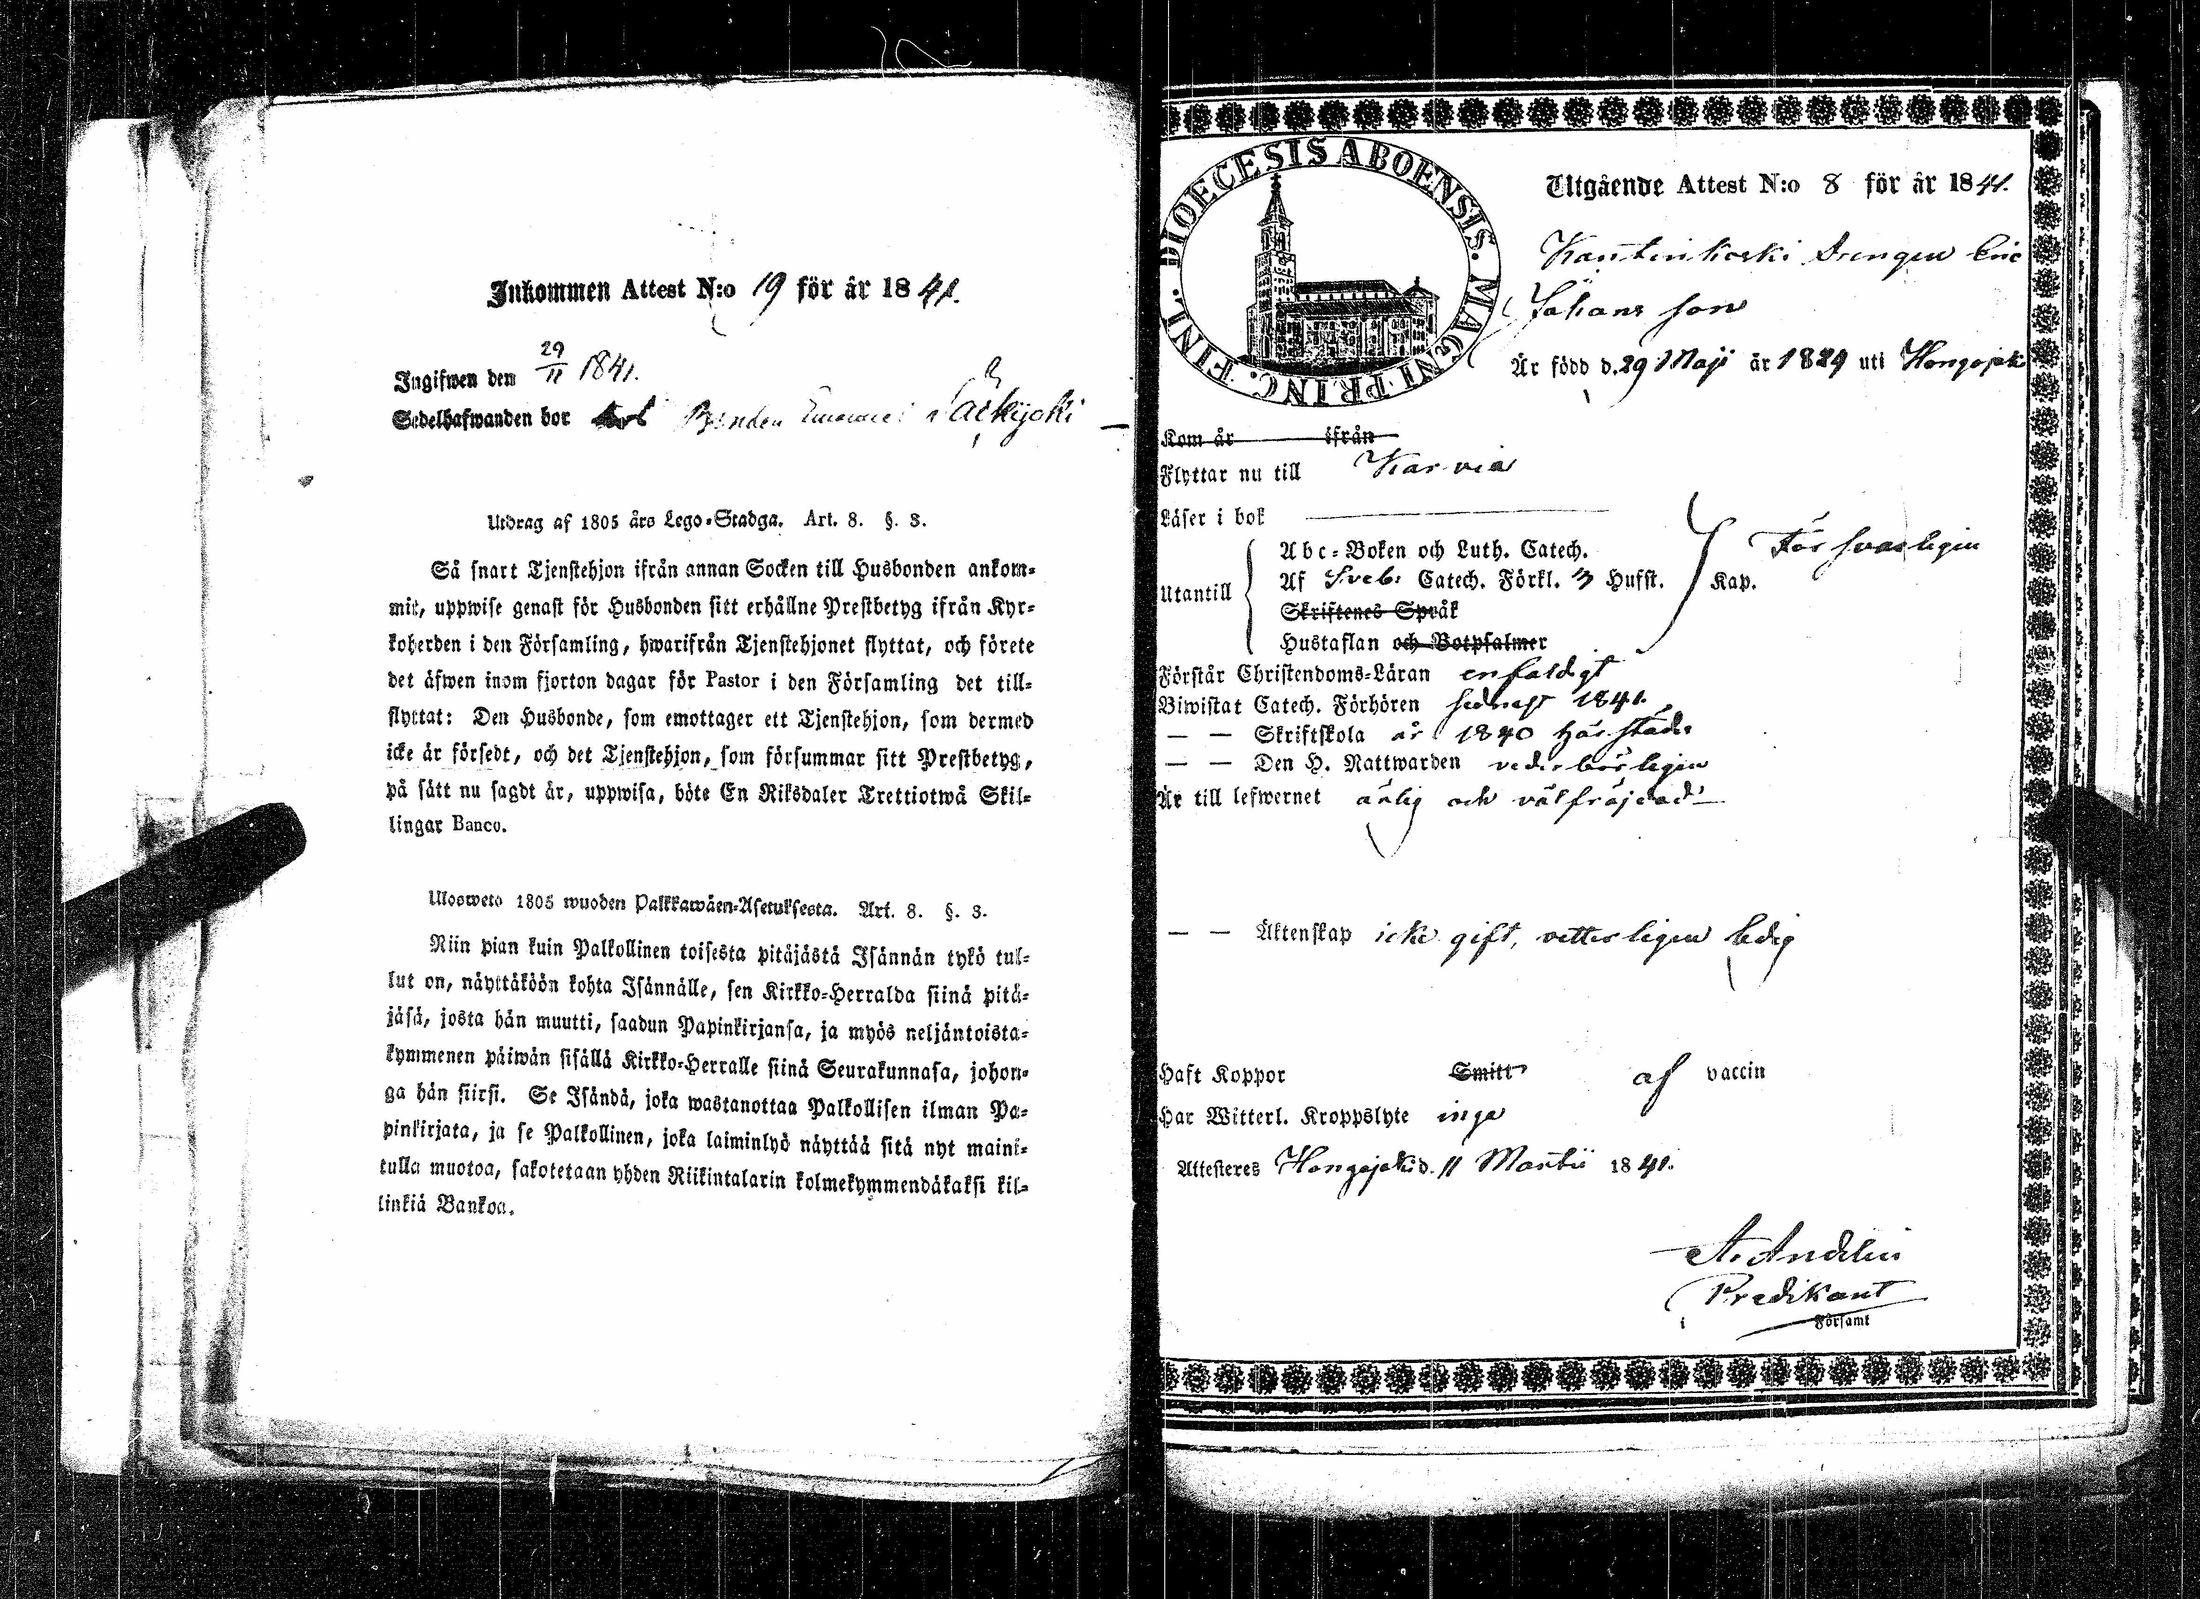 Inkommen Attest N:o 19 för år 1841.
Ingifwen den 29/11 1841.
Sedelhafwanden bor Bonden Säckijoki
Utdrag af 1805 års Lego-Stadga. Art. 8. §. 3.
Så snart Tjenstehjon ifrån annan Socken till Husbonden ankom-
mit, uppwise genast för Husbonden sitt erhållne Prestbetyg ifrån Kyr-
koherden i den Församling, hwarifrån Tjenstehjonet flyttat, och förete
det äfwen inom fjorton dagar för Pastor i den Församling det till-
flyttat: Den Husbonde, som emottager ett Tjenstehjon, som dermed
icke är försedt, och det Tjenstehjon, som försummar sitt Prestbetyg,
på sätt nu sagdt är, uppwisa, böte En Riksdaler Trettiotwå Skil-
lingar Banco.
Ulosweto 1805 wuoden Palkkawäen-Asetuksesta. Art. 8. §. 3.
Niin pian kuin Palkollinen toisesta pitäjästä Isännän tykö tul-
lut on, näyttäköön kohta Isännälle, sen Kirkko-Herralda siinä pitä-
jäsä, josta hän muutti, saadun Papinkirjansa, ja myös neljäntoista-
kymmenen päiwän sisällä Kirkko-Herralle siinä Seurakunnasa, johon-
ga hän siirsi. Se Isändä, joka wastanottaa Palkollisen ilman Pa-
pinkirjata, ja se Palkollinen, joka laiminlyö näyttää sitä nyt maini-
tulla muotoa, sakotetaan yhden Riikintalarin kolmekymmendäkaksi kil-
linkiä Bankoa.
DIOECESIS ABOENSIS. MAGNI PRINC. FINL.
Utgående Attest N:o 8 för år 1841.
Kantinkoski Drengen Eric
Johansson
Är född d. 29 Maji år 1824 uti Hongojoki
Kom år ifrån
Flyttar nu till Karvia
Läser i bok
Utantill
Abc-Boken och Luth. Catech.
Af Sveb: Catech. Förkl. 3 Hufst. Kap. Försvarligen
Skriftenes Språk
Hustaflan och Botpsalmer
Förstår Christendoms-Läran enfaldigt
Biwistat Catech. Förhören sednast 1841.
— — Skriftskola år 1840 härstädes
— — Den H. Nattwarden vederbörligen
Är till lefwernet ärlig och välfräjdad
— — Äktenskap icke gift, vetterligen ledig
Haft Koppor Smitt af vaccin
Har Witterl. Kroppslyte inga
Attesteres Hongojoki d. 11 Martii 1841.
A. Andelin
Predikant
i Församl